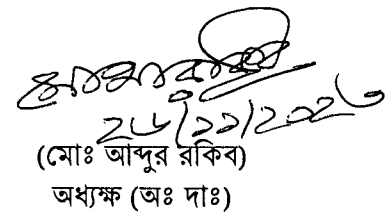 ২৬/১১/২০২৩
(মোঃ আব্দুর রকিব)
অধ্যক্ষ (অঃ দাঃ)